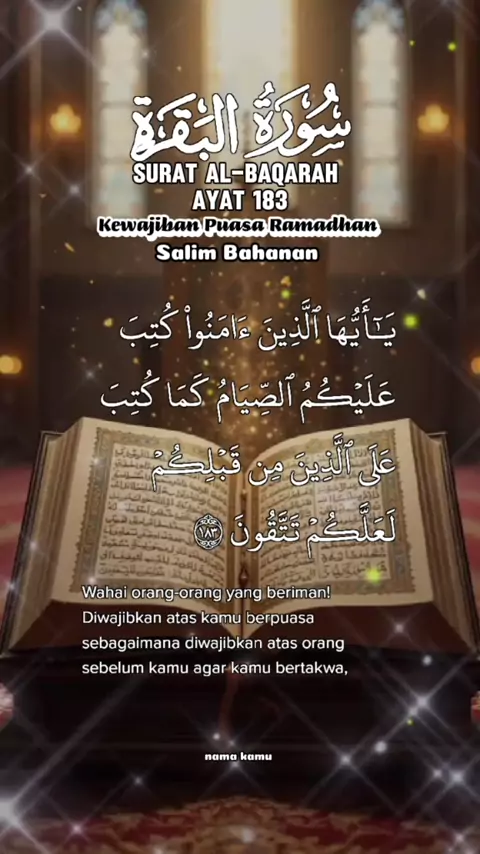 سُورَةُ البَقَرَةِ
SURAT AL-BAQARAH
AYAT 183
Kewajiban Puasa Ramadhan
Salim Bahanan
يَـٰٓأَيُّهَا ٱلَّذِينَ ءَامَنُوا۟ كُتِبَ
عَلَيْكُمُ ٱلصِّيَامُ كَمَا كُتِبَ
عَلَى ٱلَّذِينَ مِن قَبْلِكُمْ
لَعَلَّكُمْ تَتَّقُونَ ١٨٣
Wahai orang-orang yang beriman!
Diwajibkan atas kamu berpuasa
sebagaimana diwajibkan atas orang
sebelum kamu agar kamu bertakwa,
nama kamu